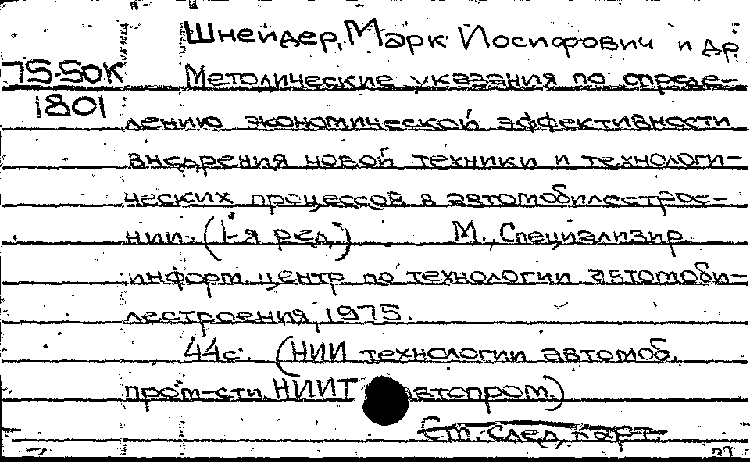 Шнейдер, Марк Иосифович и др
75-50К Методические указания по опреде-
1801
лению экономической эффективности
внедрения новой техники и технологи-
ческих процессов в автомобилестрое-
нии. (1-я ред.) М., Специализир.
информ. центр по технологии автомоби-
лестроения, 1975.
44с. (НИИ технологии автомоб.
пром-сти. НИИТ втопром.)
См. след. карт.